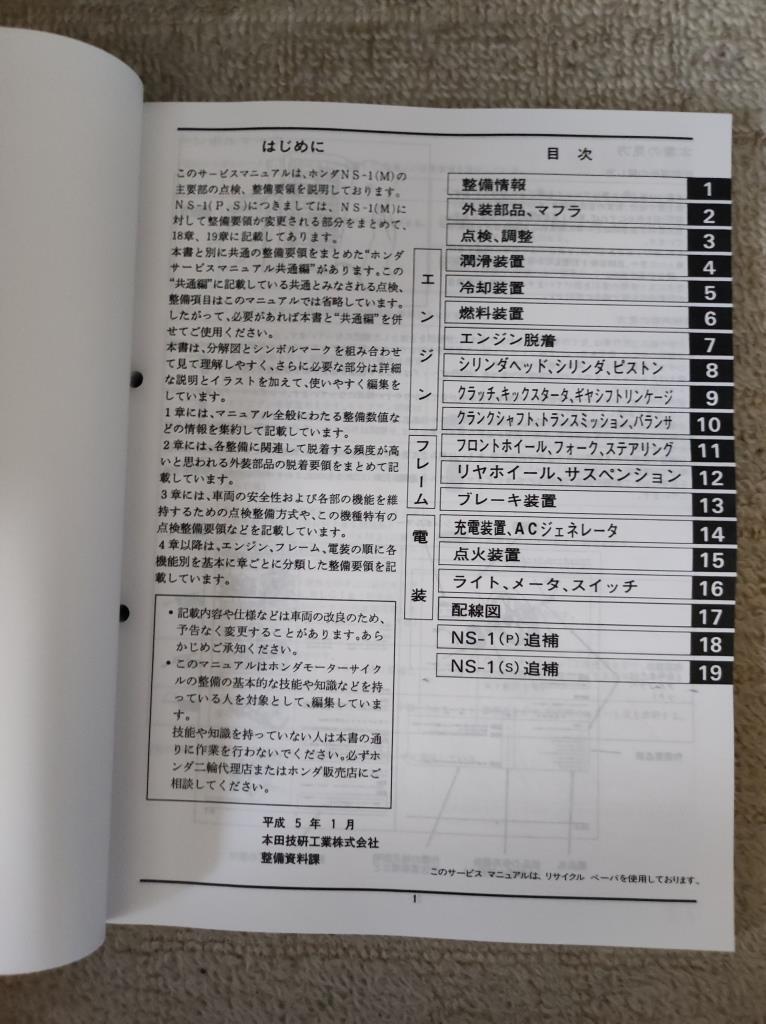 はじめに
このサービスマニュアルは、ホンダNS-1(M)の
主要部の点検、整備要領を説明しております。
NS-1(P、S)につきましては、NS-1(M)に
対して整備要領が変更される部分をまとめて、
18章、19章に記載してあります。
本書と別に共通の整備要領をまとめた“ホンダ
サービスマニュアル共通編”があります。この
“共通編”に記載している共通とみなされる点検、
整備項目はこのマニュアルでは省略しています。
したがって、必要があれば本書と“共通編”を併
せてご使用ください。
本書は、分解図とシンボルマークを組み合わせ
て見て理解しやすく、さらに必要な部分は詳細
な説明とイラストを加えて、使いやすく編集を
しています。
1章には、マニュアル全般にわたる整備数値な
どの情報を集約して記載しています。
2章には、各整備に関連して脱着する頻度が高
いと思われる外装部品の脱着要領をまとめて記
載しています。
3章には、車両の安全性および各部の機能を維
持するための点検整備方式や、この機種特有の
点検整備要領などを記載しています。
4章以降は、エンジン、フレーム、電装の順に各
機能別を基本に章ごとに分類した整備要領を記
載しています。
• 記載内容や仕様などは車両の改良のため、
予告なく変更することがあります。あら
かじめご承知ください。
• このマニュアルはホンダモーターサイク
ルの整備の基本的な技能や知識などを持
っている人を対象として、編集していま
す。
技能や知識を持っていない人は本書の通
りに作業を行わないでください。必ずホ
ンダ二輪代理店またはホンダ販売店にご
相談してください。
平成 5 年 1 月
本田技研工業株式会社
整備資料課
目 次
整備情報 1
外装部品、マフラ 2
点検、調整 3
エンジン
潤滑装置 4
冷却装置 5
燃料装置 6
エンジン脱着 7
シリンダヘッド、シリンダ、ピストン 8
クラッチ、キックスタータ、ギヤシフトリンケージ 9
クランクシャフト、トランスミッション、バランサ 10
フレーム
フロントホイール、フォーク、ステアリング 11
リヤホイール、サスペンション 12
ブレーキ装置 13
電装
充電装置、ACジェネレータ 14
点火装置 15
ライト、メータ、スイッチ 16
配線図 17
NS-1(P)追補 18
NS-1(S)追補 19
このサービス マニュアルは、リサイクル ペーパを使用しております。
1